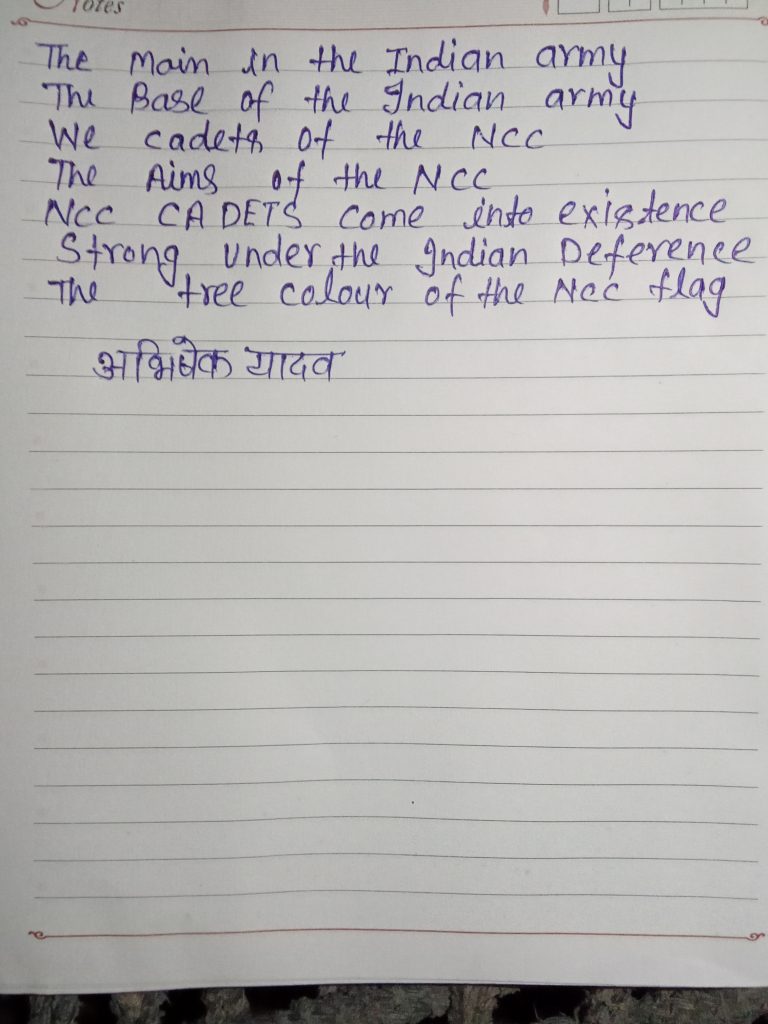 Notes
The Main in the Indian army
The Base of the Indian army
We cadets of the NCC
The Aims of the NCC
NCC CADETS come into existence
Strong under the Indian Deference
The tree colour of the Ncc flag
अभिषेक यादव